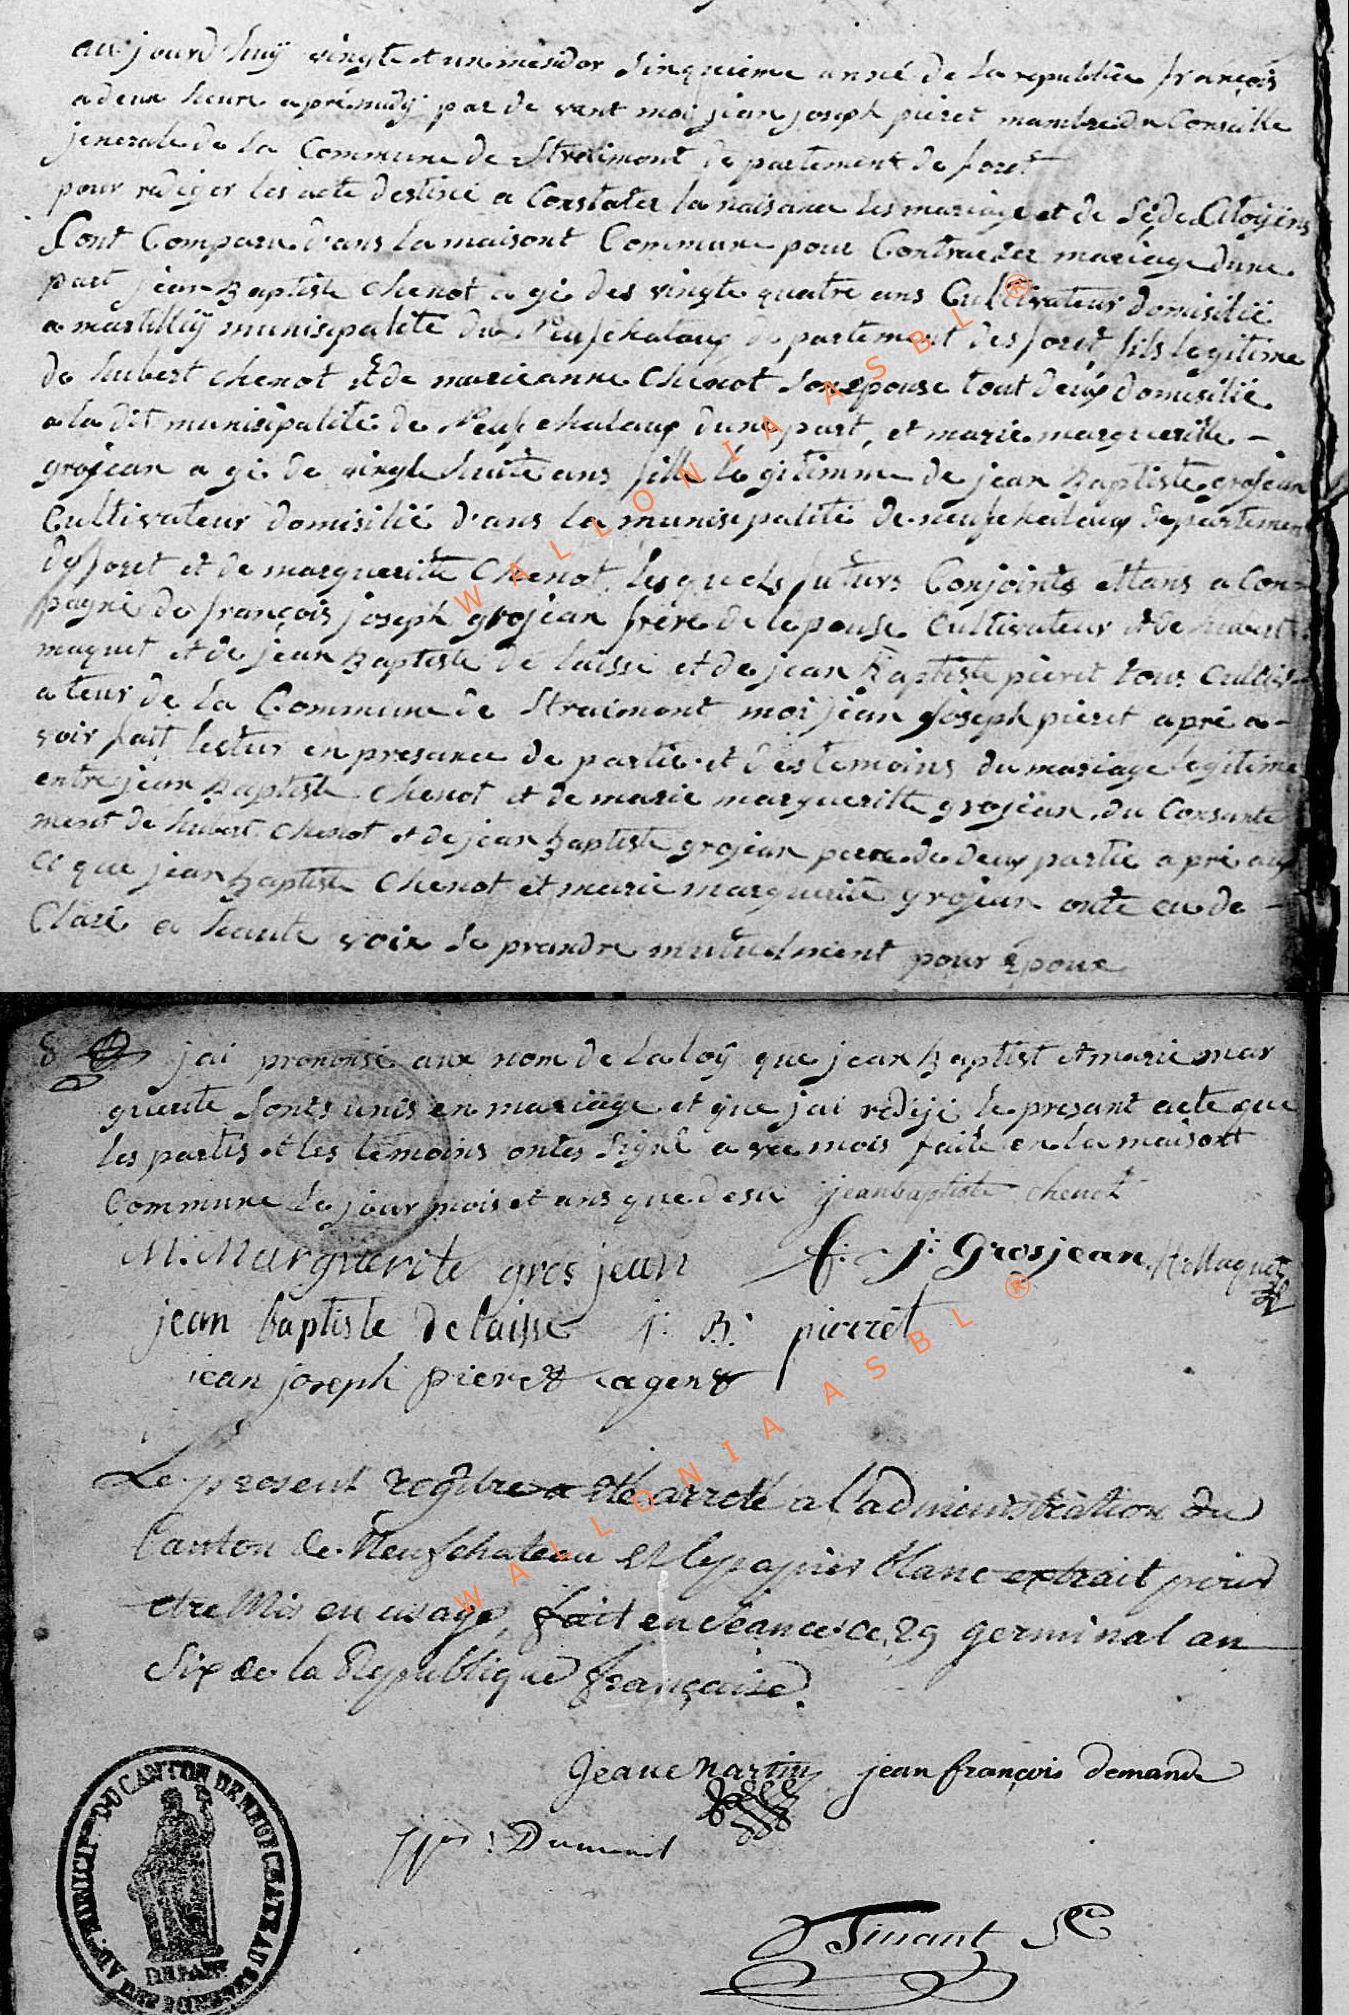 aujourd huÿ vingte et un mesidor sinquieme anné de la republice françois
a deux heure aprémidÿ par de vant moi jean joseph pieret mambre du Conseille
jenerale de la Commune de Straimont de partement de foret
pour rediger les acte destiné a Constater la naisance les mariage et de sé de Citoÿens
Sont Comparu dans la maisont Commune pour Contracter mariage dune
part jean Baptiste chenot a gé des vingte quatre ans Cultivateur domisilié
a martillÿ munisipalité du Neufchataux de partement des foret fils legitime
de hubert chenot et de marieanne Chenot son epouse tout deux domisilié
a la dit munisipalité de Neufchataux dune part, et marie margueritte -
grojean a gé de vingte huite ans fille le gitimme de jean Baptiste grojean
Cultivateur domisilié d'ans la munisipalité de neufchataux departement
de foret et de margueritte Chenot les quels futurs Conjoints ettans a Com-
pagné de françois joseph grojean frere de lepouse Cultivateur et de hubert
maquet et de jean Baptiste de laisse et de jean Baptiste pieret tous Cultiv-
ateur de la Commune de Straimont moi jean joseph pieret apré a-
voir fait lectur en presance de partie et des temoins du mariage legitime
entre jean Baptiste chenot et de marie margueritte grojean, du Consante
ment de hubert chenot et de jean Baptiste grojean peere de deux partie apré aux
ce que jean Baptiste Chenot et marie marguerite grojean onte eu de -
Claré a haute voix se prandre mutuelment pour epoux
8 j'ai pronoisé aux nom de la loÿ que jean Baptist et marie mar
guerite sonts unis en mariage et que j'ai redijé le presant acte que
les partis et les temoins ontes signé a vec mois faite en la maisont
Commune le jour mois et ans que desu jeanbaptiste chenot
M. Marguerite gros jean f. j. Grosjean H Maquet
jean baptiste delaisse j. B. pieret
jean joseph pieret agent
Le present registre a été arreté a l'administration du
Canton de Neufchateau et le papier blanc extrait pour
etre Mis en usage, fait en séance ce 29 germinal an
Six de la Republique française.
jean françois demande
Dumont
Tinant
AD. MUNICIP. DU CANTON DE NEUFCHATEAU
WALLONIA ASBL ®
WALLONIA ASBL ®